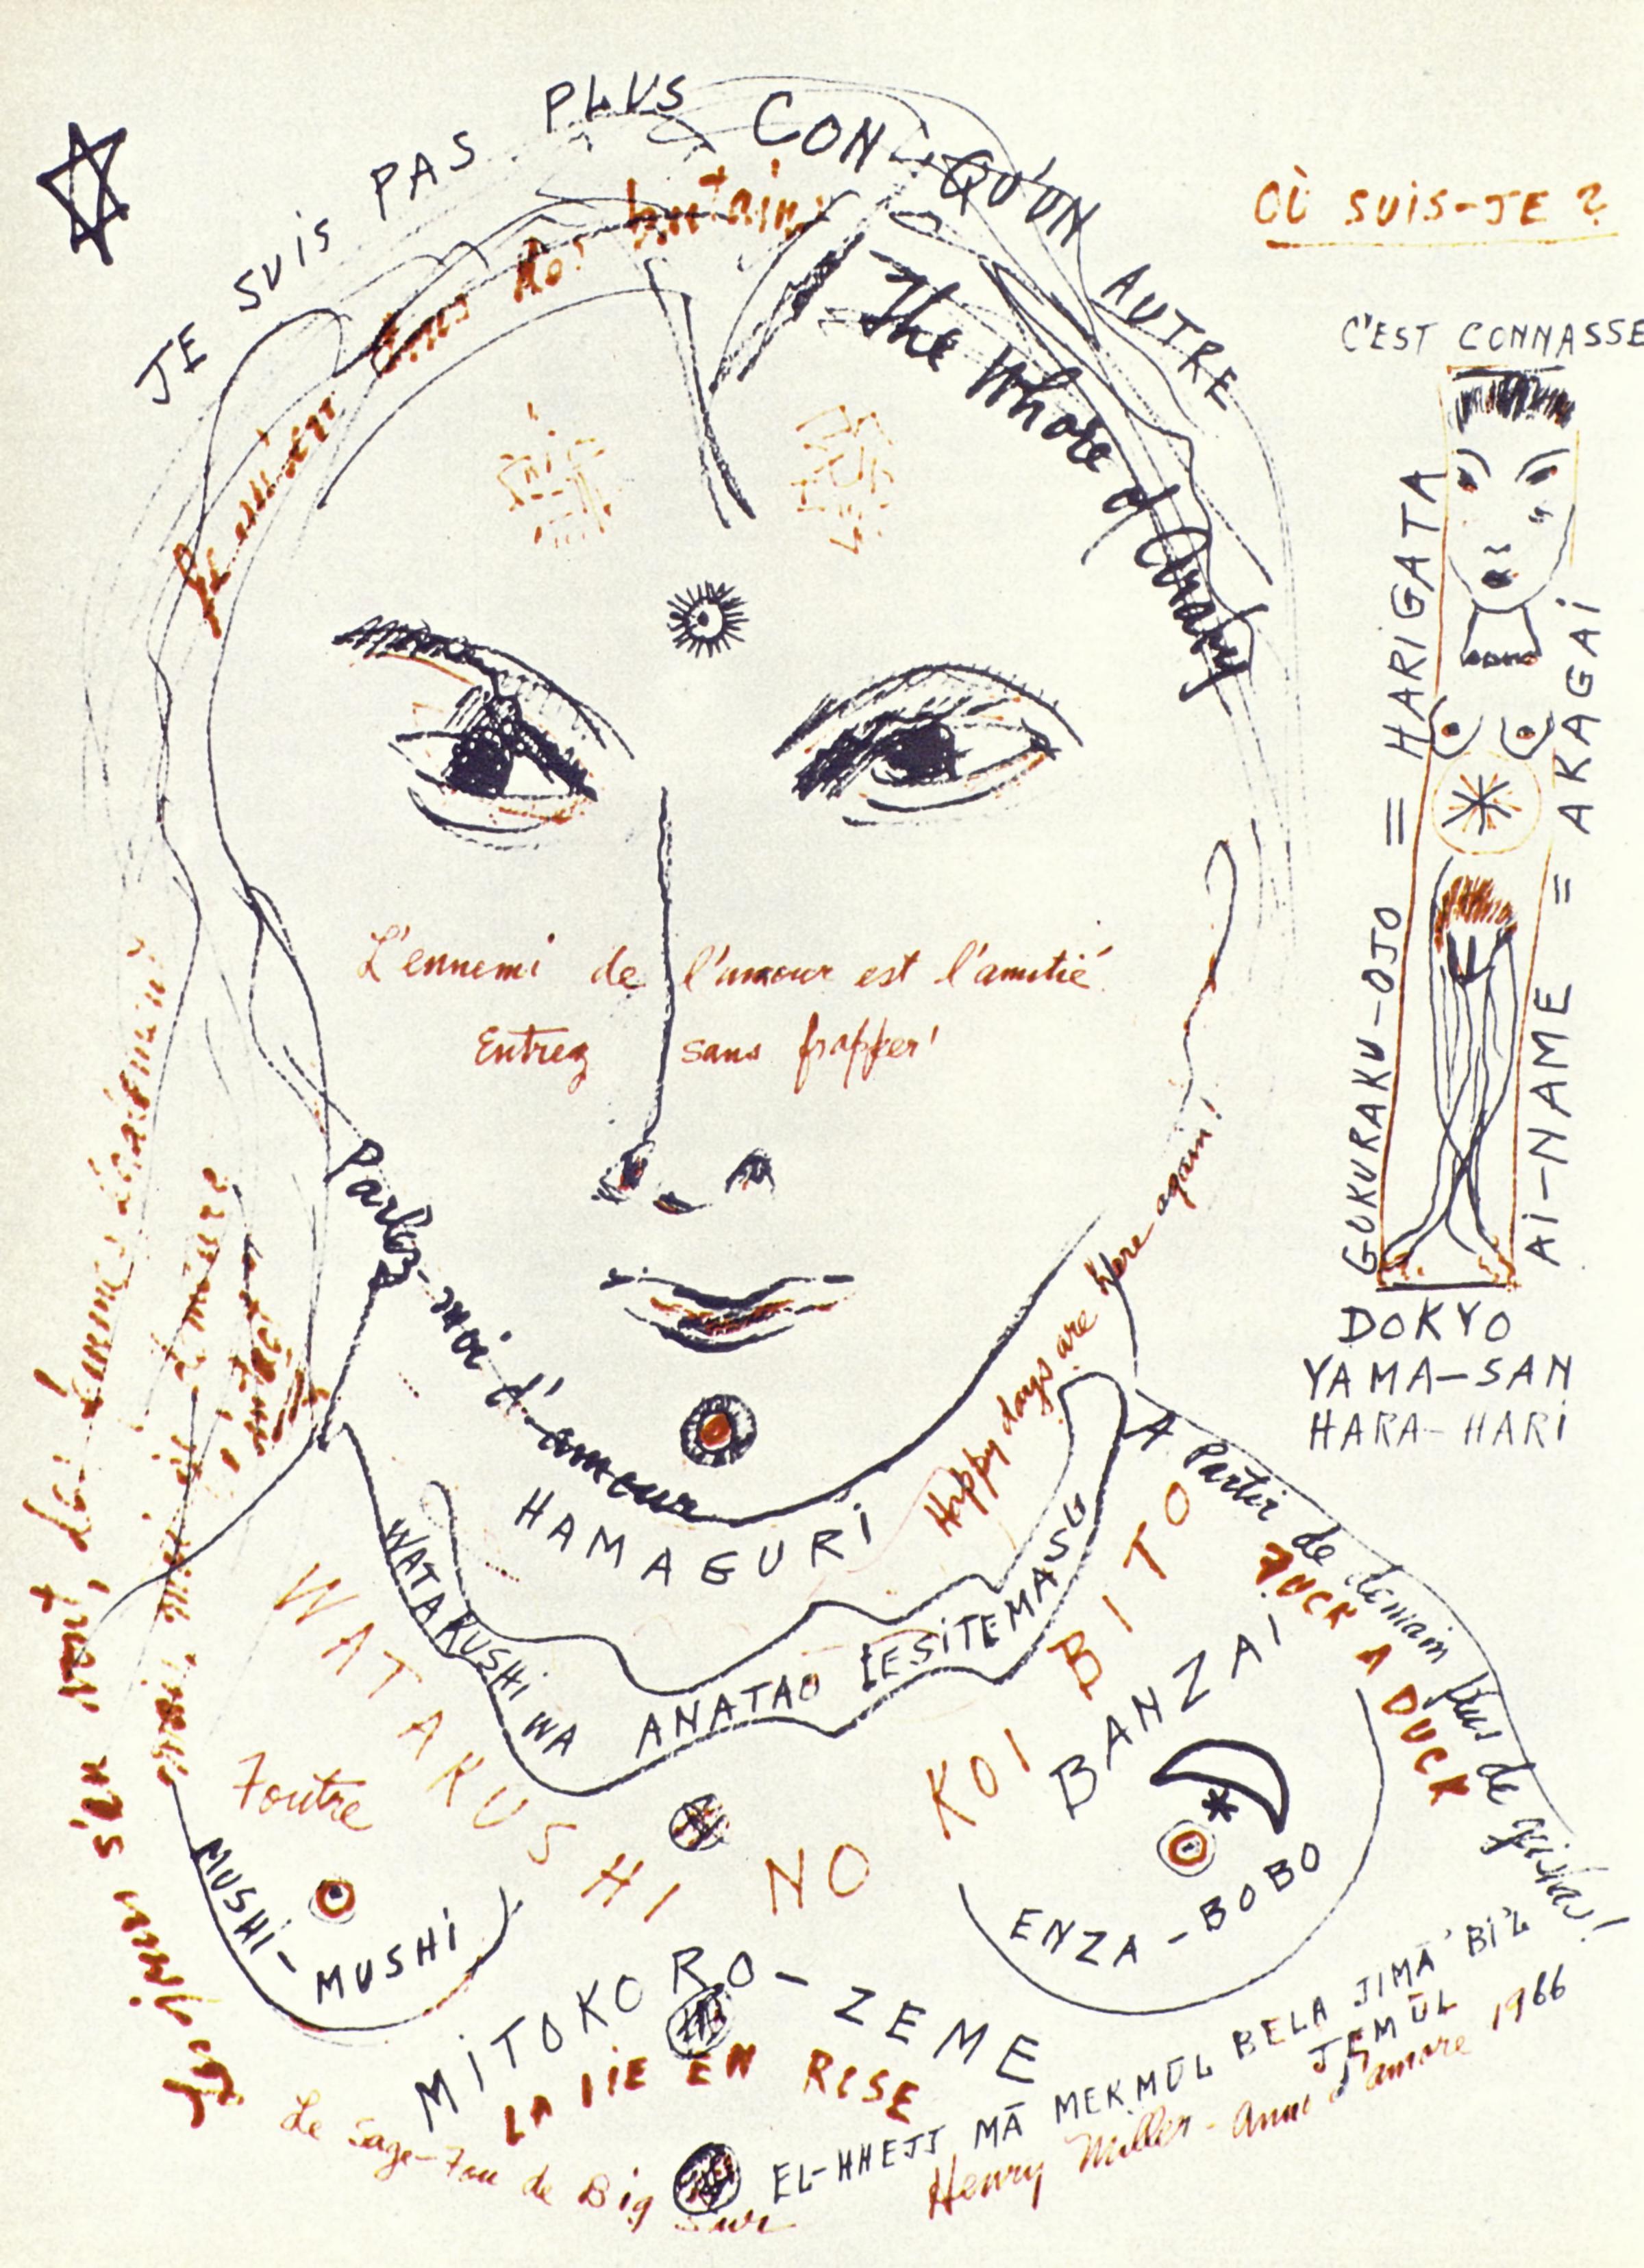 JE SUIS PAS PLUS CON QU'UN AUTRE
OÙ SUIS-JE ?
C'EST CONNASSE
putains
The Whore of
L'ennemi de l'amour est l'amitié
Entrez sans frapper!
GOKURAKU-OJO = HARIGATA
AI-NAME = AKAGAI
DOKYO
YAMA-SAN
HARA-HARI
Parlez-moi d'amour
Happy days are here again!
HAMAGURI
WATAKUSHI WA
ANATAO
A Partir de demain plus de
WATAKUSHI NO KOI BITO
FUCK A DUCK
BANZAI
Foutre
MUSHI-MUSHI
ENZA-BOBO
s'en vont, des
MITOKORO-ZEME
LA VIE EN ROSE
EL-HHEJJ MĀ MEKMŪL BELA JIMĀ' BI'L
JEMŪL
Le Sage-Fou de Big Sur
Henry Miller - Anni d'amore 1966